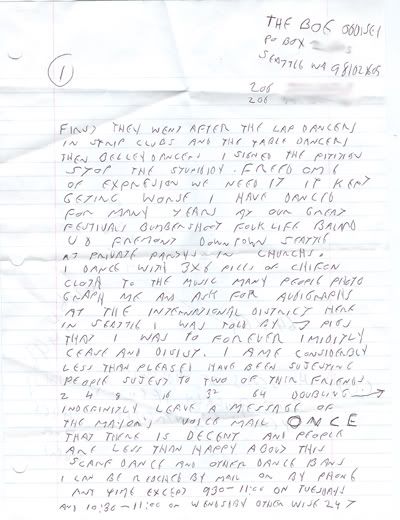 THE BOE
PO BOX
SEATTLE WA
206
206
1
FIRST THEY WENT AFTER THE LAP DANCERS
IN STRIP CLUBS AND THE TABLE DANCERS
THEN BELLEY DANCERS I SIGNED THE PITITION
STOP THE STUPIDISY. FREEDOM E
OF EXPRESSION WE NEED IT IT KEPT
GETING WORSE I HAVE DANCED
FOR MANY YEARS AT OUR GREAT
FESTIVALS BUMBERSHOOT FOLK LIFE BALARD
UD FREMONT DOWNTOWN SEATTLE
AT PRIVATE PARTYS IN CHURCHS.
I DANCE WITH 3X6 PIECES OF CHIFON
CLOTH TO THE MUSIC MANY PEOPLE PHOTO
GRAPH ME AND ASK FOR AUDIGRAPHS
AT THE INTERNATIONAL DISTRICT HERE
IN SEATTLE I WAS TOLD BY → PIGS
THAT I WAS TO FOREVER IMIDITLY
CEASE AND DISIST. I AME CONSIDERBLY
LESS THAN PLEASED HAVE BEEN SUJESTING
PEOPLE SUJEST TO TWO OF THIR FRIENDS
2 4 8 16 32 64 DOUBLING →
INDEFINITLY LEAVE A MESSAGE OF
THE MAYOR'S VOICE MAIL ONCE
THAT THERE IS DECENT AND PEOPLE
ARE LESS THAN HAPPY ABOUT THIS
SCARF DANCE AND OTHER DANCE BANS
I CAN BE REOCHED BY MAIL OR BY PHONE
ANY TIME EXCEPT 930-11:00 ON TUESDAYS
AND 10:30-11:00 ON WENDSIDY OTHER WISE 247